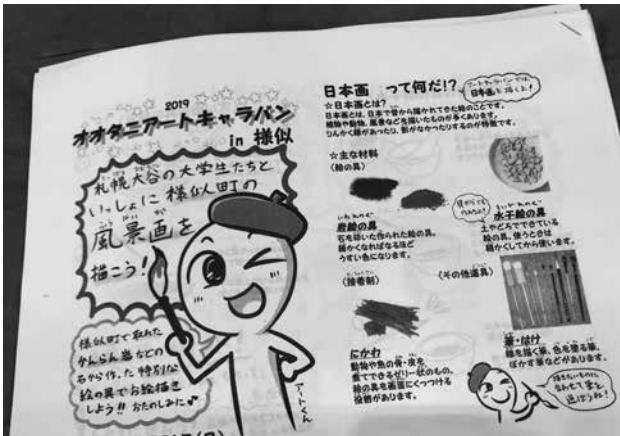 2019
オオタニアートキャラバン
in 様似
札幌大谷の大学生たちと
いっしょに様似町の
風景画を
描こう!
様似町で取れた
かんらん岩などの
石から作った特別な
絵の具でお絵描き
しよう!! おたのしみに♪
アートくん
日本画 って何だ!?
アートキャラバンでは、
日本画を描くよ!
☆日本画とは?
日本画とは、日本で昔から描かれてきた絵のことです。
植物や動物、風景などを描いたものが多くあります。
りんかく線があったり、影がなかったりするのが特徴です。
☆主な材料
〈絵の具〉
いわえのぐ
岩絵の具
石を砕いた作られた絵の具。
細かくなればなるほど
うすい色になります。
すいひえのぐ
水干絵の具
土やどろでできている
絵の具。使うときは
細かくしてから使います。
〈接着剤〉
〈その他道具〉
にかわ
動物や魚の骨・皮を
煮てできるゼリー状のもの。
絵の具を画面にくっつける
役割があります。
筆・はけ
線を描く筆、色を塗る筆、
ぼかす筆などがあります。
描きたいものに
あわせて筆を
選ぼうね!